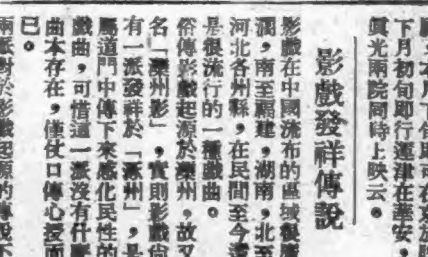 下月初旬即行運津在華安，
眞光兩院同時上映云。
影戲發祥傳說
影戲在中國流布的區域很廣
潤，南至福建，湖南，北至
河北各州縣，在民間至今還
是很流行的一種戲曲。
俗傳影戲起源於灤州，故又
名「灤州影」，實則影戲尙
有一派發祥於「涿州」，是
屬道門中傳下來感化民性的
戲曲，可惜這一派沒有什麼
曲本存在，僅仗口傳心授而
已。
兩派對於影戲起源的傳說不